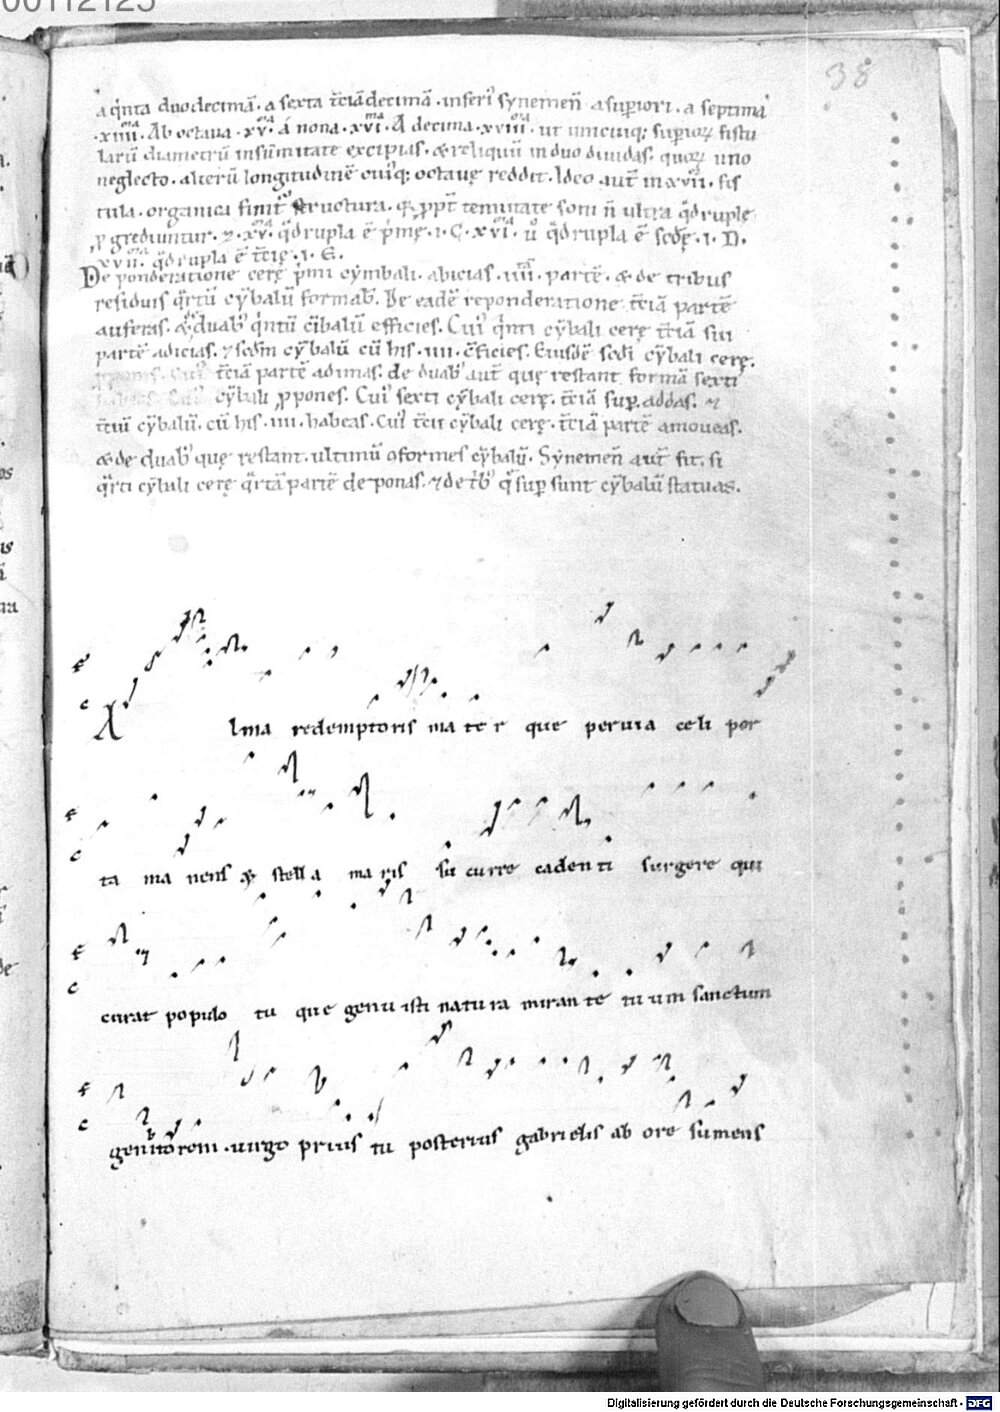 00112125
38
a q̇nta duodecimā. a sexta t̄ciādecimā. inferi᷒ synemen̄ a supiori. a septima
.xiiii.ma Ab octaua .xv.ma á nona .xvi.ma A decima .xviii.ma ut unicuiq; supioꝝ fistu
larū diametrū insūmitate excipias. & reliquū in duo diuidas. quoꝝ uno
neglecto. alterū longitudinē cuiq; octauę reddit. Ideo aut̄ in xvii. fis
tula. organica finit᷒ structura. q̇ ꝓpt̄ tenuitate soni n̄ ultra q̇druplę
ꝓgrediuntur. ⁊ .xv.ma q̇drupla ē p̄mę .i. C. xvi.ma u̇ q̇drupla ē scd̄ę .i. D.
xvii.ma q̇drupla ē t̄cię .i. E.
De ponderatione cerę p̄mi cȳmbali. abicias .iiii.tā partē. & de tribus
residuis q̇rtū cȳbalū formab᷒. De eadē reponderatione t̄ciā partē
auferas. & duab᷒ q̇ntū cībalū efficies. Cui᷒ q̇nti cȳbali cerę t̄ciā sui
partē adicias. ⁊ scd̄m cȳbalū cū his .iiii. efficies. Eiusdē scd̄i cȳbali cerę.
t̄ciā partē adimas. de duab᷒ aut̄ quę restant formā sexti
cȳbali ꝓpones. Cui᷒ sexti cȳbali cerę. t̄ciā sup. addas. ⁊
t̄ciū cȳbalū. cū his .iiii. habeas. Cui᷒ t̄cii cȳbali cerę. t̄ciā partē amoueas.
& de duab᷒ quę restant. ultimū ɔformes cȳbalū. Synemen̄ aut̄ fit. si
q̇rti cȳbali cerę q̇rtā partē deponas. ⁊ de t̄b᷒ q̄ sup sunt cȳbalū statuas.
F
c
Alma redemptoris ma te r que peruia celi por
F
c
ta ma nens & stella maris su curre cadenti surgere qui
F
c
curat populo tu que genu isti natura mirante tu um sanctum
F
c
genitorem .uirgo prius tu posterius gabrielis ab ore sumens
Digitalisierung gefördert durch die Deutsche Forschungsgemeinschaft - DFG